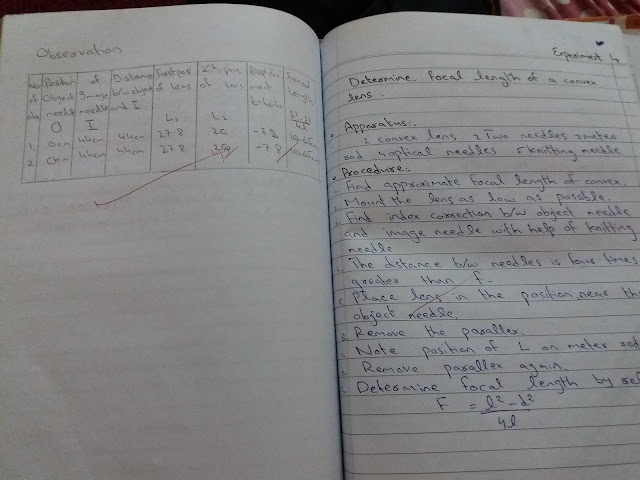 Observation
No Position of Distance First pos 2nd pos Displace Focal
of Object Image b/w object of lens of lens ment length
obs needle needle and I
O I L₁ L₂
1. 0cm 44cm 44cm 27.8 20 -7.8
2. 0cm 44cm 44cm 27.8 -7.8
Experiment 4
Determine focal length of a convex
lens.
Apparatus:-
1 convex lens 2 Two needles 3 meter
rod 4 optical needles 5 knitting needle
Procedure:-
Find approximate focal length of convex.
Mount the lens as low as possible.
Find index correction b/w object needle
and image needle with help of knitting
needle
The distance b/w needles is four times
greater than f.
Place lens in the position, near the
object needle.
Remove the parallex.
Note position of L on meter rod
Remove parallex again.
Determine focal length by
F = l² - d²
4l